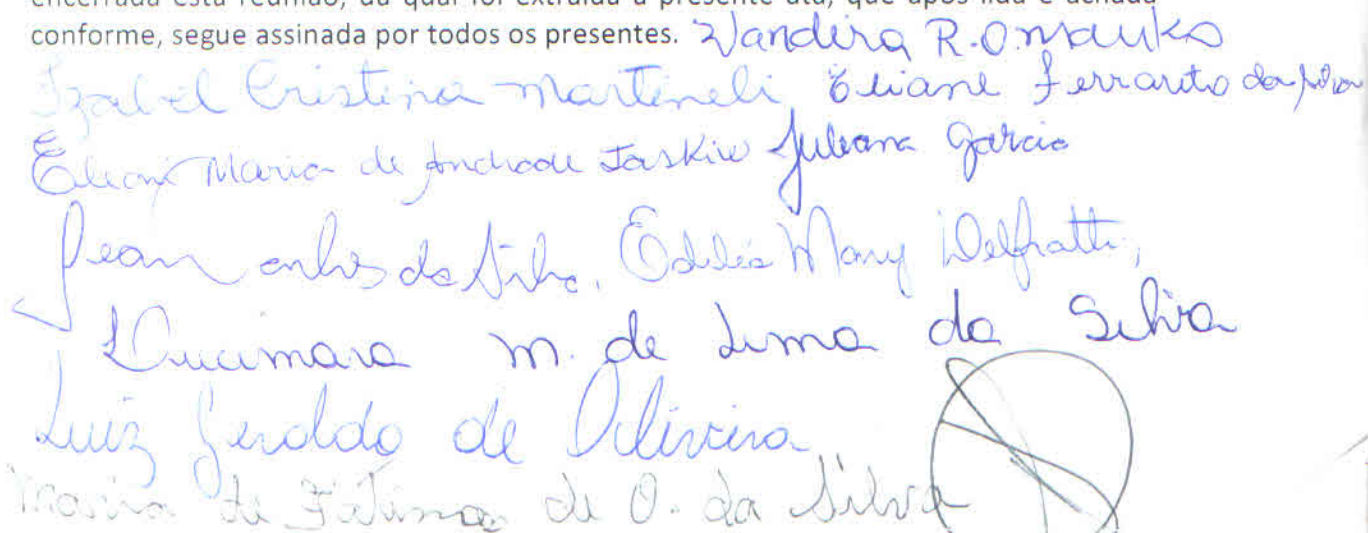 encerrada esta reunião, da qual foi extraída a presente ata, que após lida e achada
conforme, segue assinada por todos os presentes. Vandira R.
Izabel Cristina Martineli, Eliane Ferrarito da Silva
Maria de Andrade Jaskiw Juliana Garcia
Jean da Silva, Mary Delfratti,
Lucimara M. de Lima da Silva
Luiz Geraldo de Oliveira
Maria de Fátima de O. da Silva